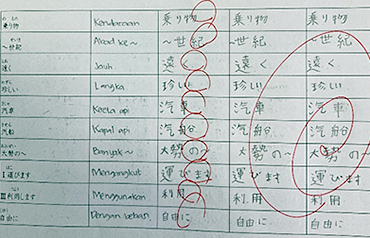 乗り物 Kendaraan 乗り物 乗り物 乗り物
～世紀 Abad ke~ ～世紀 ～世紀 ～世紀
遠く Jauh 遠く 遠く 遠く
珍しい Langka 珍しい 珍しい 珍しい
汽車 Kereta api 汽車 汽車 汽車
汽船 Kapal api 汽船 汽船 汽船
大勢の～ Banyak~ 大勢の～ 大勢の～ 大勢の～
Ⅰ運びます Mengangkut 運びます 運びます 運びます
Ⅲ利用します Menggunakan 利用 利用 利用
自由に Dengan bebas 自由に 自由に 自由に